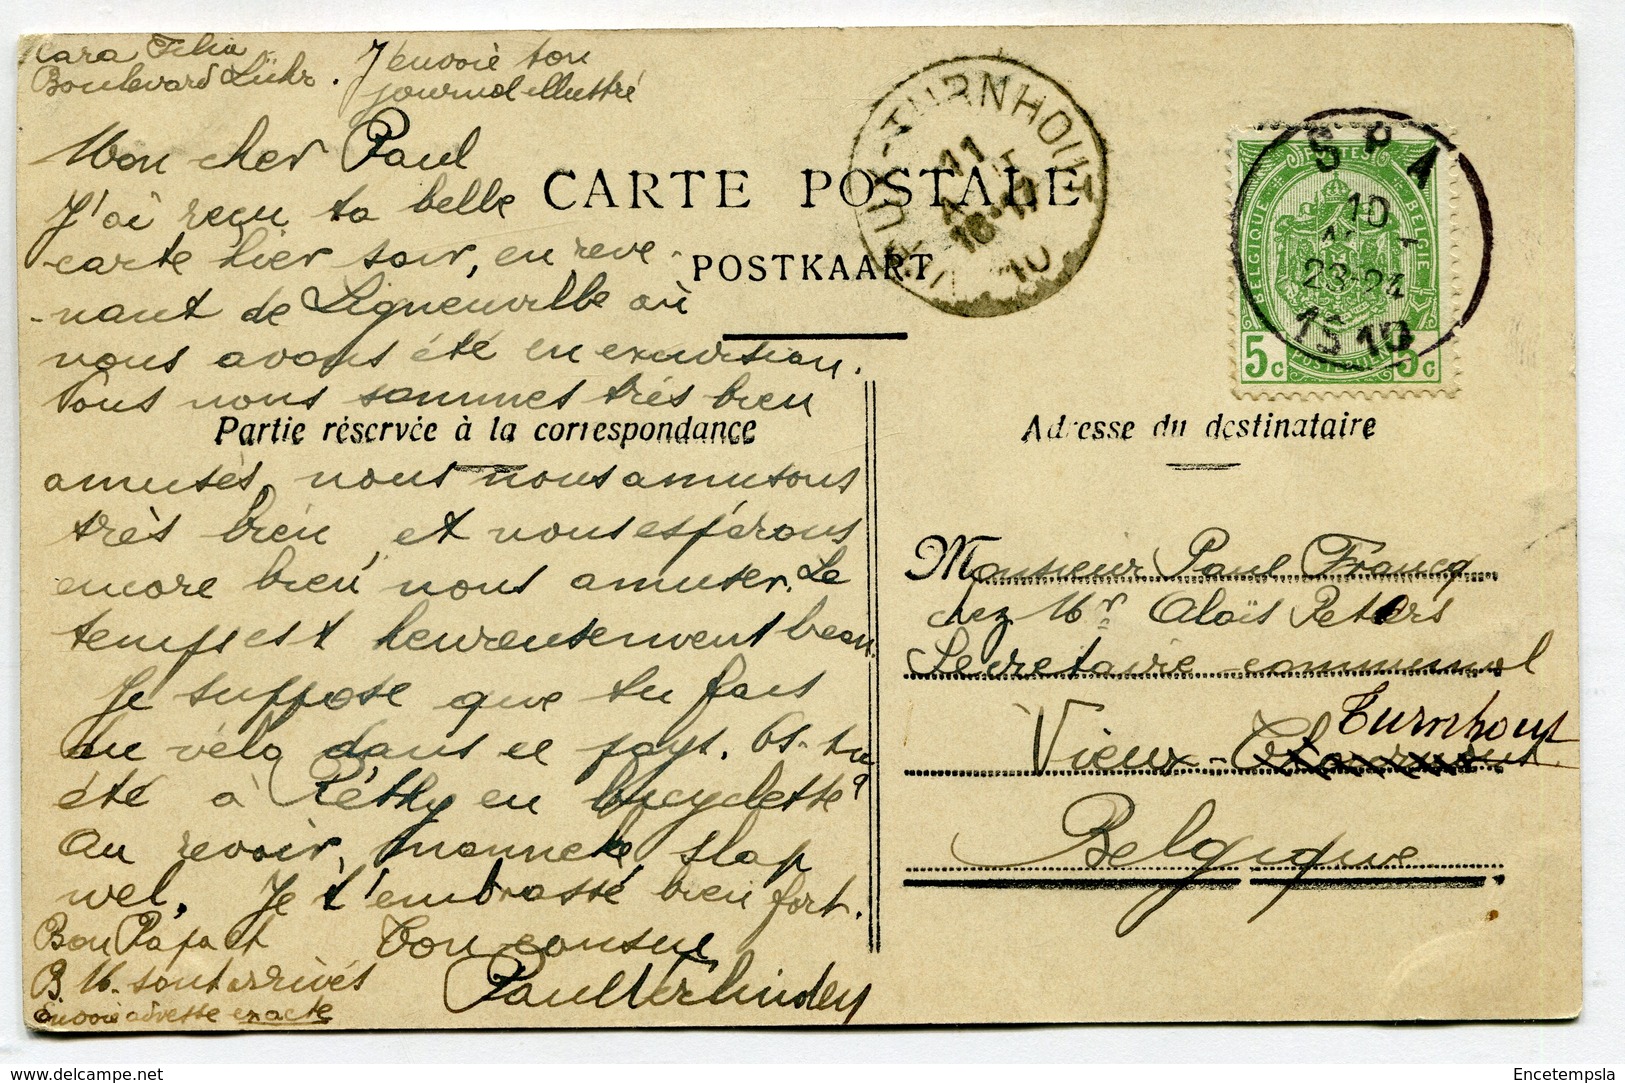 Cara Felia
Boulevard Lühr. J'envoie ton
journal illustré
Mon cher Paul
J'ai reçu ta belle
carte hier soir, en reve-
-nant de Ligneuville où
nous avons été en excursion.
Tous nous sommes très bien
amusés, nous nous amusons
très bien, et nous espérons
encore bien nous amuser. Le
temps est heureusement beau.
Je suppose que tu fais
du vélo dans ce pays. As-tu
été à Réthy en bicyclette?
Au revoir, manneke, slap
wel. Je t'embrasse bien fort.
Bon Papa et
B. M. sont arrivés
Envoie adresse exacte
Ton cousin
Paul Terlinden
CARTE POSTALE
POSTKAART
Partie réservée à la correspondance
Adresse du destinataire
VIEUX-TURNHOUT
11
16-17
10
SPA
10
23-24
1910
POSTES
BELGIQUE BELGIE
5c 5c
Monsieur Paul Francq
chez Mr Aloïs Peters
Secretaire communal
Vieux- Turnhout
Belgique
delcampe.net
Encetempsla